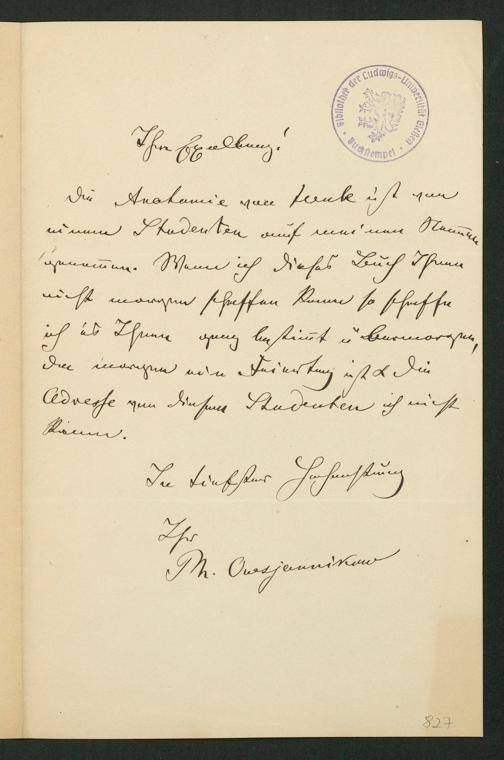 Bibliothek der Ludwigs-Universität Gießen
Buchstempel
Ihre Excellenz!
Die Anatomie von Henle ist von
einem Studenten auf meinen Namen
genommen. Wenn ich dieses Buch Ihnen
nicht morgen schaffen kann so schaffe
ich es Ihnen ganz bestimmt übermorgen,
da morgen ein Feiertag ist & die
Adresse von diesem Studenten ich nicht
kenne.
In tiefster Hochachtung
Ihr
Ph. Owsjannikow
827